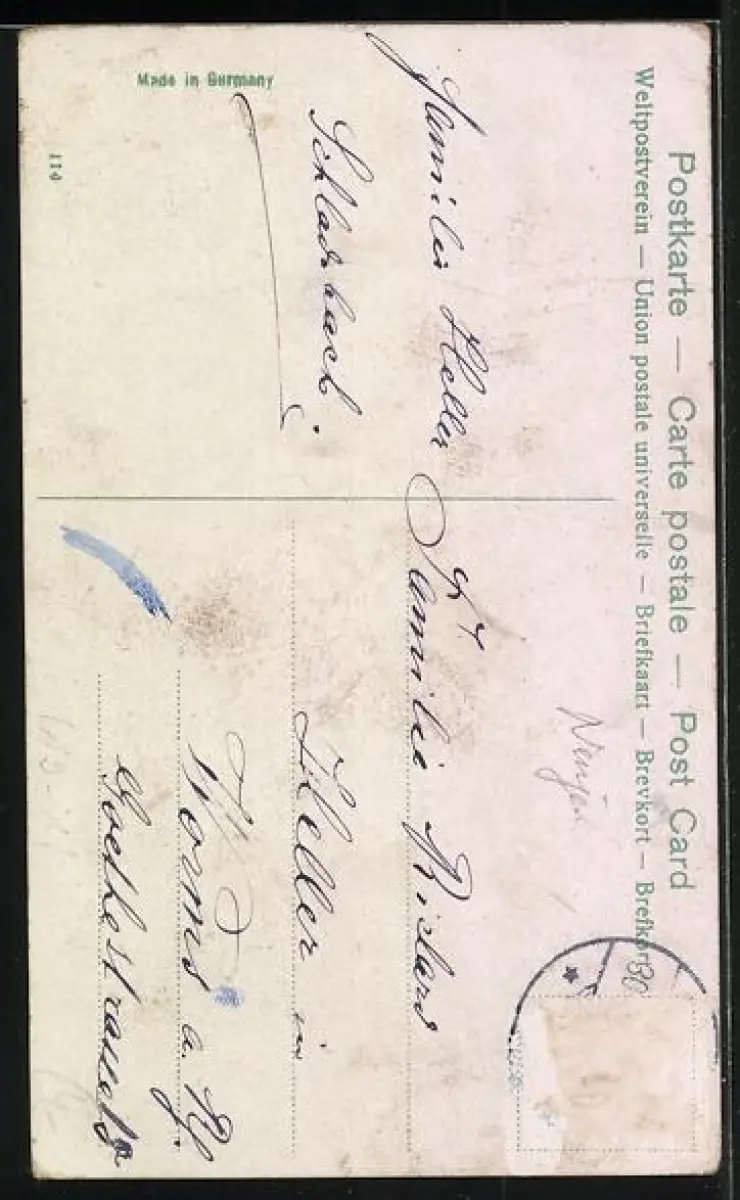 Postkarte — Carte postale — Post Card
Weltpostverein — Union postale universelle — Briefkaart — Brevkort — Brefkort
Made in Germany
114
Familie Heller
Familie Richard
Heller in
Worms a. Rh.
Goethestrasse
30